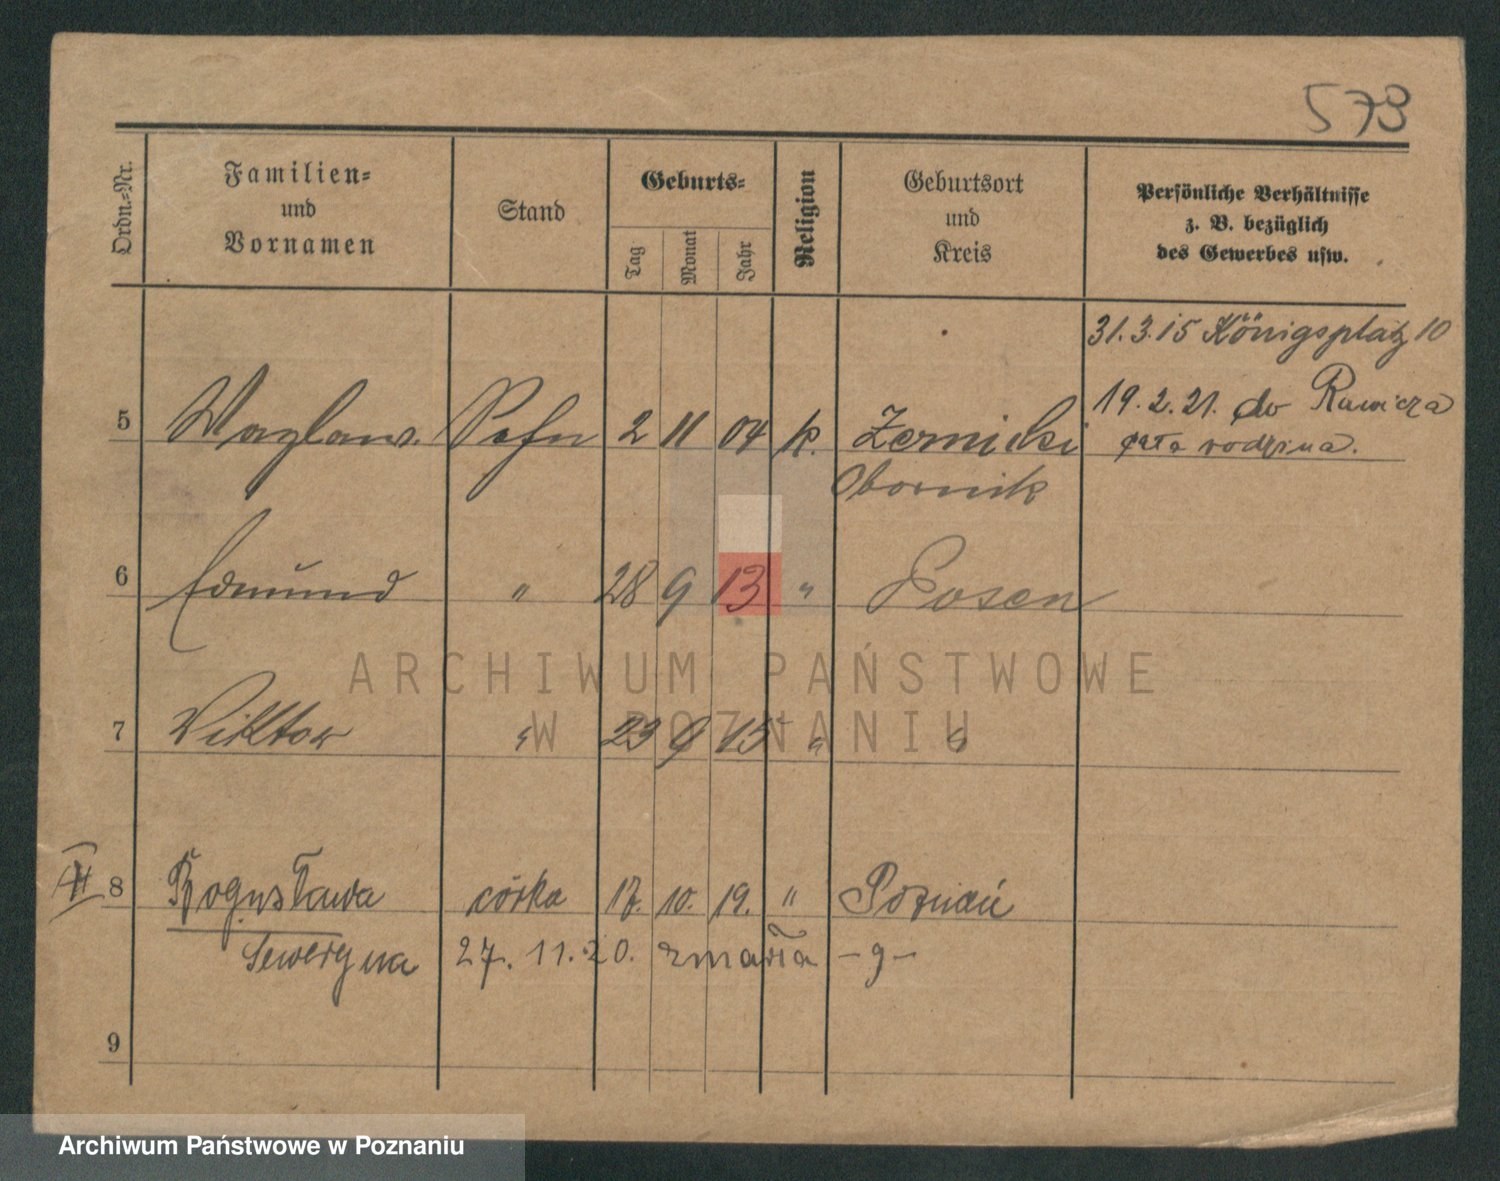 573
Ordn.-Nr.
Familien-
und
Vornamen
Stand
Geburts-
Tag
Monat
Jahr
Religion
Geburtsort
und
Kreis
Persönliche Verhältnisse
z. B. bezüglich
des Gewerbes usw.
31.3.15 Königsplatz 10
19.2.21. do Rawicza
cała rodzina.
5 Wazlaw. Sohn 2 11 04 k. Zernicki
Obornik
6 Edmund " 28 9 13 " Posen
7 Viktor " 23 9 15 " "
8 Bogusława córka 17. 10. 19. " Poznań
Seweryna 27. 11. 20. zmarła -9-
9
ARCHIWUM PAŃSTWOWE
W POZNANIU
Archiwum Państwowe w Poznaniu